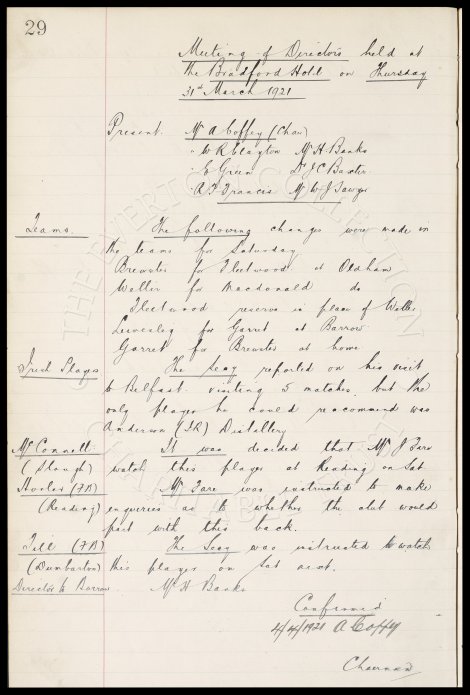 29
Meeting of Directors held at
the Bradford Hotel on Thursday
31st March 1921
Present. Mr A Coffey (Chair)
" W R Clayton Mr H Banks
" E Green Dr J C Baxter
" A T Francis Mr W J Sawyer
Teams. The following changes were made in
the teams for Saturday
Brewster for Fleetwood at Oldham
Weller for Macdonald do
Fleetwood reserve in place of Weller
Leivesley for Garret at Barrow
Garret for Brewster at home
Irish Players The Secy reported on his visit
to Belfast visiting 5 matches but the
only player he could reccommend was
Anderson Distillery
McConnell It was decided that Mr J Fare
(Slough) watch this player at Reading on Sat
(FB) Mr Fare was instructed to make
(Reading) enqueries as to whether the club would
part with this back.
(FB) The Secy was instructed to watch
(Dumbarton) this player on Sat
Director to Barrow. Mr H Banks
Confirmed
4/4/1921 A Coffey
Chairman
THE EVERTON COLLECTION